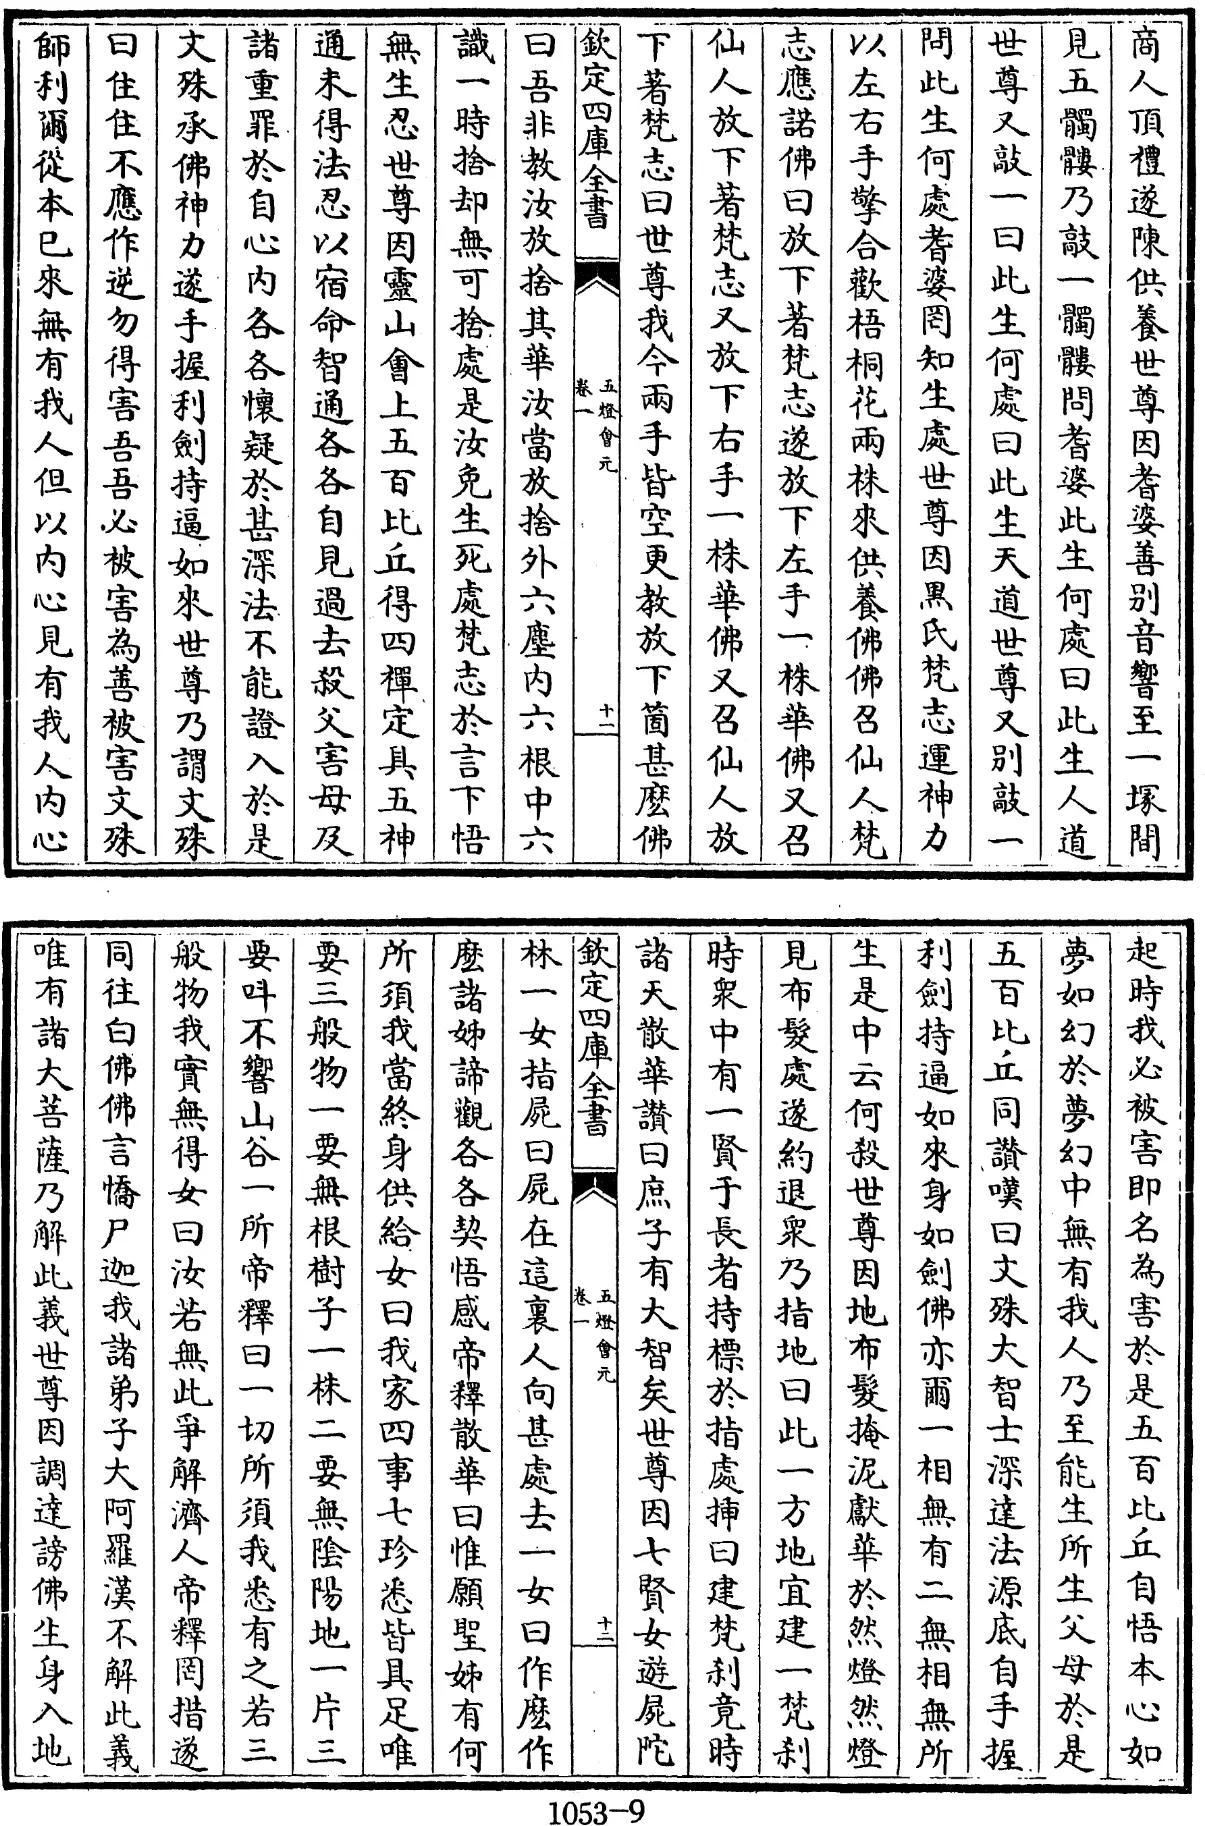 商人頂禮遂陳供養世尊因耆婆善別音響至一塚間
見五髑髏乃敲一髑髏問耆婆此生何處曰此生人道
世尊又敲一曰此生何處曰此生天道世尊又別敲一
問此生何處耆婆罔知生處世尊因黑氏梵志運神力
以左右手擎合歡梧桐花兩株來供養佛佛召仙人梵
志應諾佛曰放下著梵志遂放下左手一株華佛又召
仙人放下著梵志又放下右手一株華佛又召仙人放
下著梵志曰世尊我今兩手皆空更教放下箇甚麽佛
欽定四庫全書
五燈會元
卷一
十一
曰吾非教汝放捨其華汝當放捨外六塵內六根中六
識一時捨却無可捨處是汝免生死處梵志於言下悟
無生忍世尊因靈山會上五百比丘得四禪定具五神
通未得法忍以宿命智通各各自見過去殺父害母及
諸重罪於自心內各各懷疑於甚深法不能證入於是
文殊承佛神力遂手握利劍持逼如來世尊乃謂文殊
曰住住不應作逆勿得害吾吾必被害為善被害文殊
師利爾從本已來無有我人但以內心見有我人內心
起時我必被害即名為害於是五百比丘自悟本心如
夢如幻於夢幻中無有我人乃至能生所生父母於是
五百比丘同讚嘆曰文殊大智士深達法源底自手握
利劍持逼如來身如劍佛亦爾一相無有二無相無所
生是中云何殺世尊因地布髮掩泥獻華於然燈然燈
見布髮處遂約退衆乃指地曰此一方地宜建一梵刹
時衆中有一賢于長者持標於指處揷曰建梵刹竟時
諸天散華讚曰庶子有大智矣世尊因七賢女遊屍陀
欽定四庫全書
五燈會元
卷一
十二
林一女指屍曰屍在這裏人向甚處去一女曰作麽作
麽諸姊諦觀各各契悟感帝釋散華曰惟願聖姊有何
所須我當終身供給女曰我家四事七珍悉皆具足唯
要三般物一要無根樹子一株二要無陰陽地一片三
要呌不響山谷一所帝釋曰一切所須我悉有之若三
般物我實無得女曰汝若無此爭解濟人帝釋罔措遂
同往白佛佛言憍尸迦我諸弟子大阿羅漢不解此義
唯有諸大菩薩乃解此義世尊因調達謗佛生身入地
1053-9